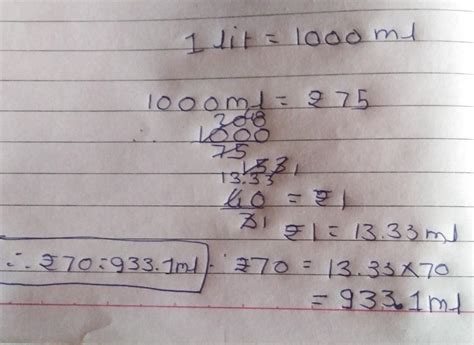 1 lit = 1000 ml
1000 ml = ₹ 75
1000
75
13.33
40 = ₹1
₹1 = 13.33 ml
∴ ₹70 = 933.1 ml
₹70 = 13.33 × 70
= 933.1 ml